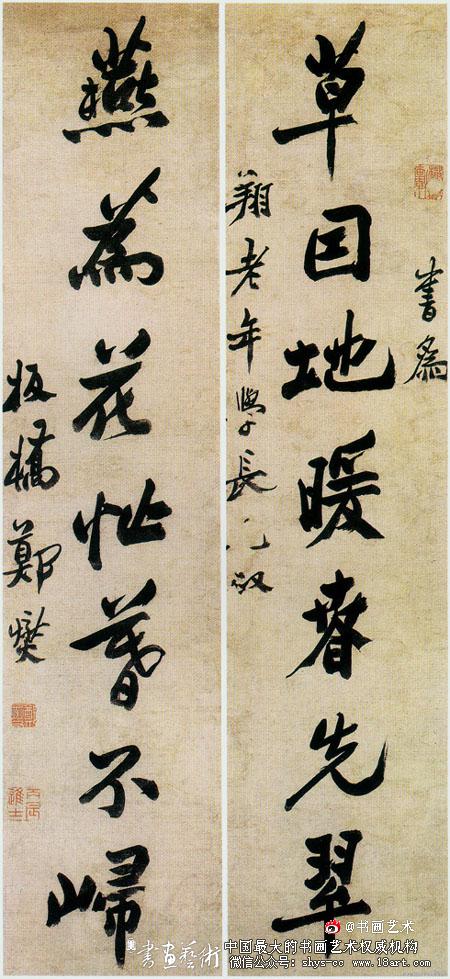 書為
草囙地暖春先翠
翔老年學長兄政
燕為花忙暮不歸
板橋鄭燮
丙辰進士
書畫藝術
@书画艺术
中国最大的书画艺术权威机构
微信公众号：shys-cc www.18art.com